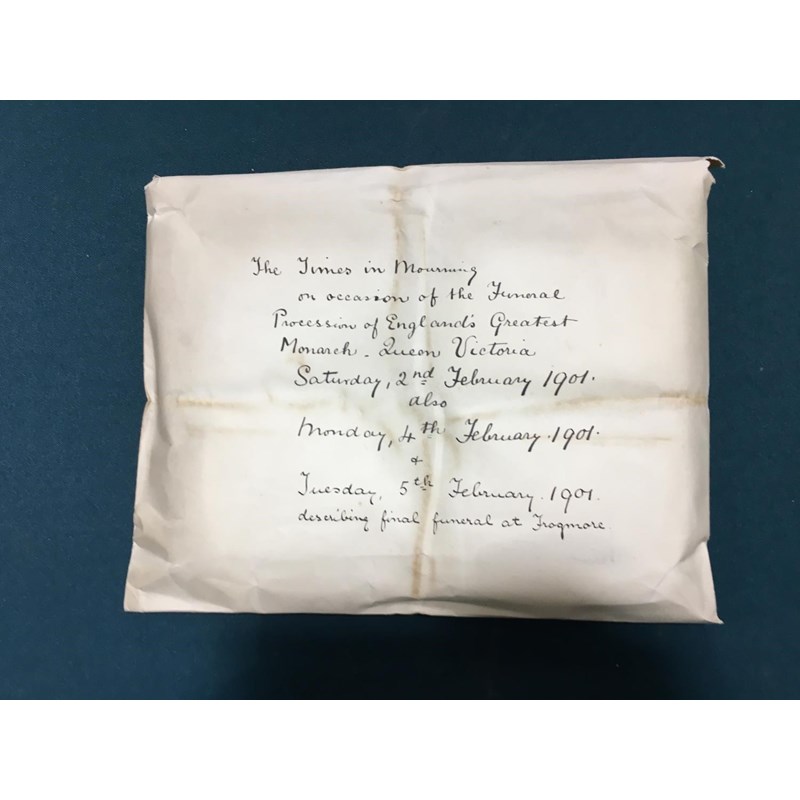 The Times in Mourning
on occasion of the Funeral
Procession of England's Greatest
Monarch - Queen Victoria
Saturday, 2nd February 1901.
also
Monday, 4th February. 1901.
&
Tuesday, 5th February. 1901.
describing final funeral at Frogmore